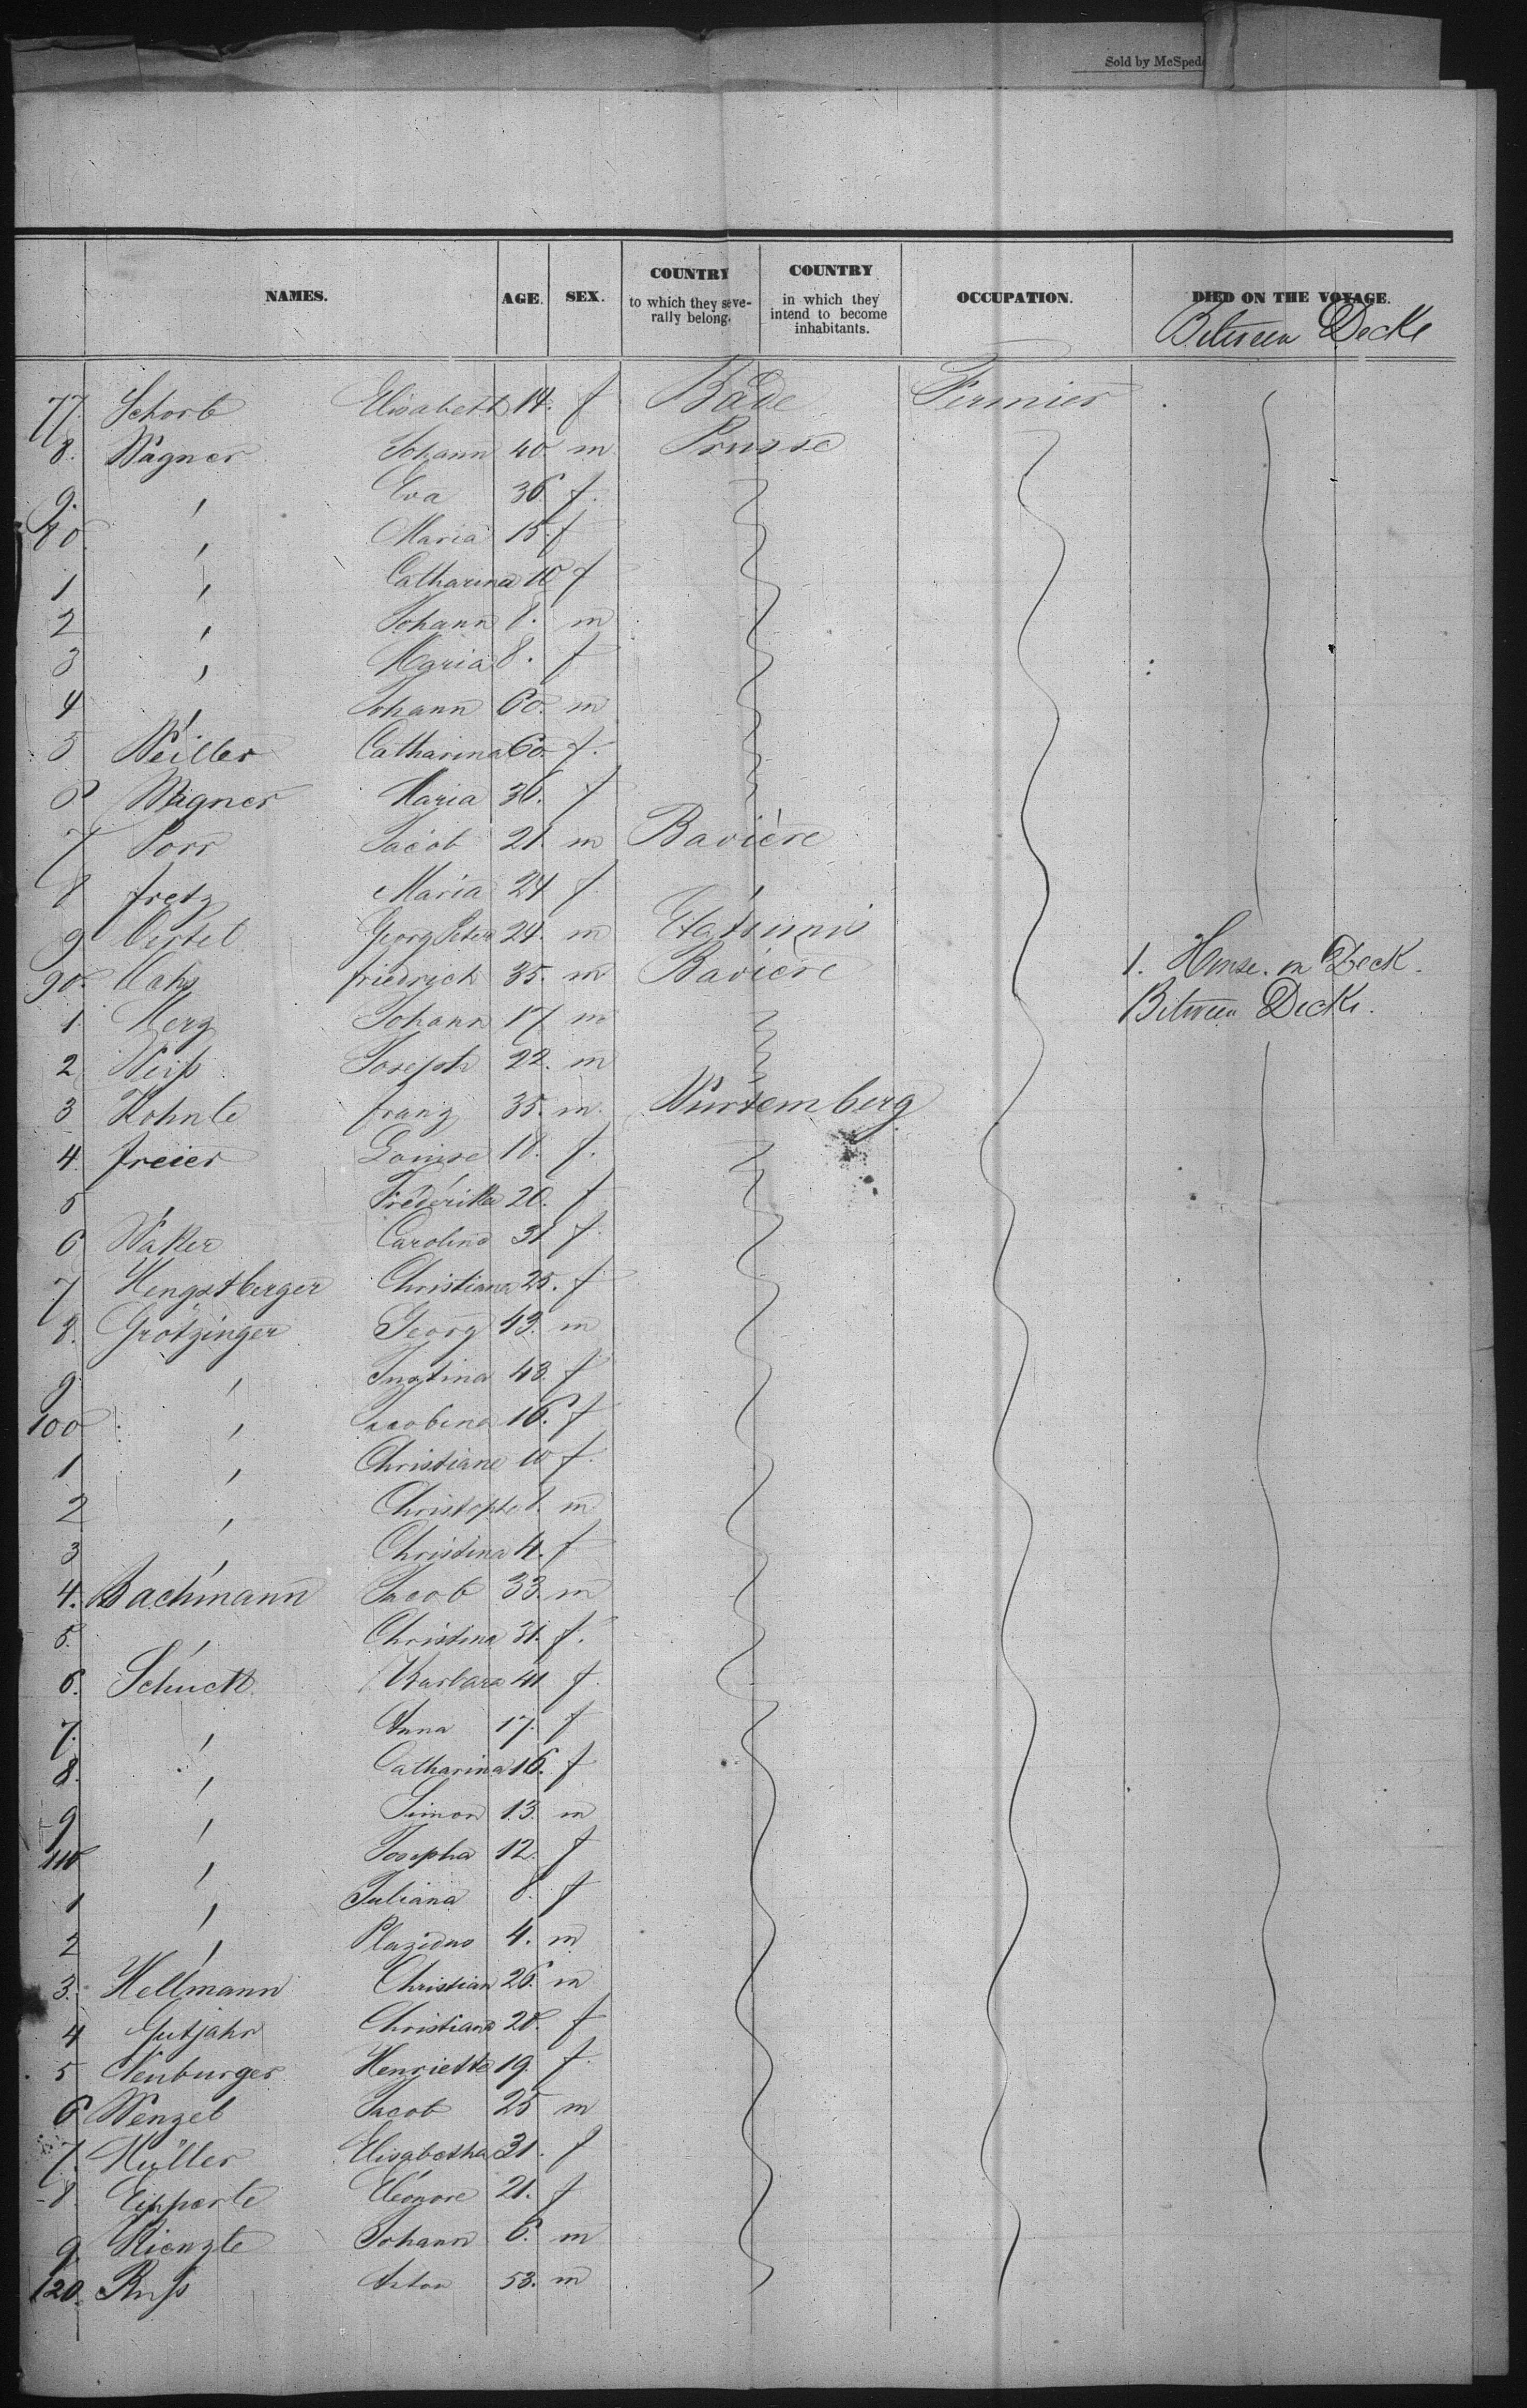 Sold by McSped
NAMES. AGE. SEX. COUNTRY to which they severally belong. COUNTRY in which they intend to become inhabitants. OCCUPATION. DIED ON THE VOYAGE.
Between Decks
77. Schorb Elisabeth 14. f Bade Fermier
8. Wagner Johann 40 m Prusse
9. " Eva 36 f.
80. " Maria 15 f
1 " Catharina 10 f
2 " Johann 8. m
3 " Maria 8. f
4 " Johann 60. m
5 Weiller Catharina 60. f.
6 Wagner Maria 36. f
7 Porr Jacob 21. m Bavière
8 Fretz Maria 24 f. "
9 Oertel Georg Peter 24. m Etatsunis
90. Friedrich 35. m Bavière 1. House on Deck.
1. Herz Johann 17 m Between Decks.
2 Weiß Joseph 22. m
3 Kohnle Franz 35. m. Wurtemberg
4. Freier Louise 18. f.
5 " Frederika 20. f
6 Walker Caroline 31 f
7 Hengstberger Christiana 25. f
8. Grötzinger Georg 43. m
9 " Justina 43. f
100 " Jacobina 16. f
1 " Christiane 10 f.
2 " Christoph 8. m
3 " Christina 4. f
4. Bachmann Jacob 33. m
5. " Christina 31. f.
6. Schuck Barbara 41 f
7. " Anna 17. f
8. " Catharina 16. f
9 " Simon 13. m
110 " Josepha 12. f
1 " Juliana 8. f
2 " Plazidus 4. m
3. Hellmann Christian 26. m
4 Gutjahr Christiana 28. f
5 Neuburger Henriette 19. f.
6 Wenzel Jacob 25 m
7. Müller Elisabetha 31. f
8. Epperle Eléonore 21. f
9. Kienzle Johann 6. m
120. Ruß Anton 53. m